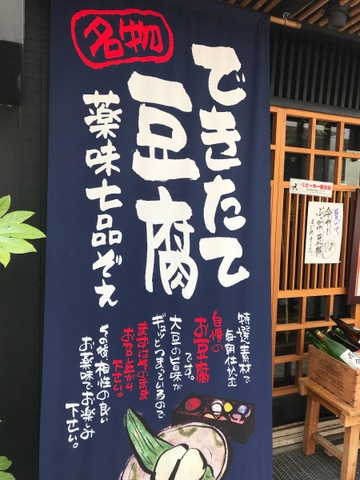 名物
できたて
豆腐
薬味七品ぞえ
特選素材で
毎朝仕込む
自慢の
お豆腐
です。
大豆の旨味が
ギュッとつまっているので
まずはそのまま
お召し上がり
下さい。
その後、相性の良い
お薬味でお楽しみ
下さい。